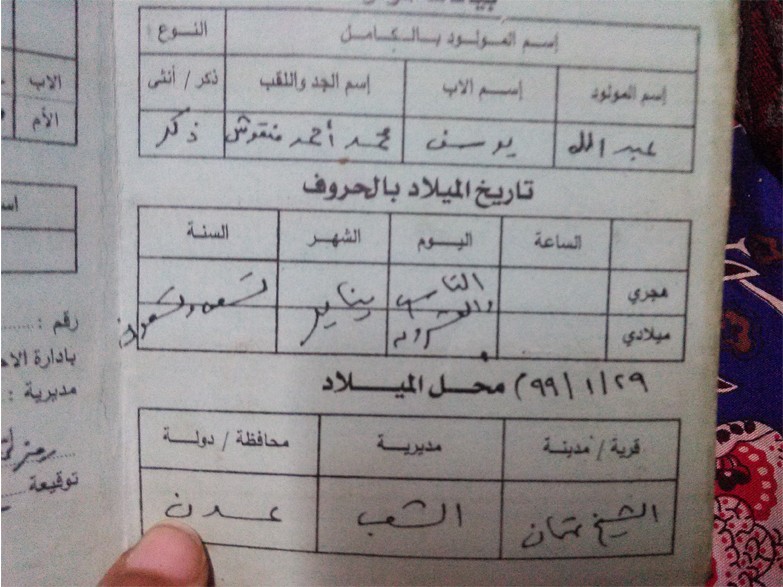 إسم المولود بالكامل النوع :
إسم المولود إسم الاب إسم الجد واللقب ذكر / أنثى
عبد الله يوسف محمد أحمد منقوش ذكر
تاريخ الميلاد بالحروف
الساعة اليوم الشهر السنة
هجري
ميلادي التاسع والعشرون يناير تسعة وتسعون
٢٩/١/٩٩) محل الميلاد
قرية / مدينة مديرية محافظة / دولة
الشيخ عثمان الشعب عدن
الاب
الأم
رقم :
بادارة الاح
مديرية :
توقيعة